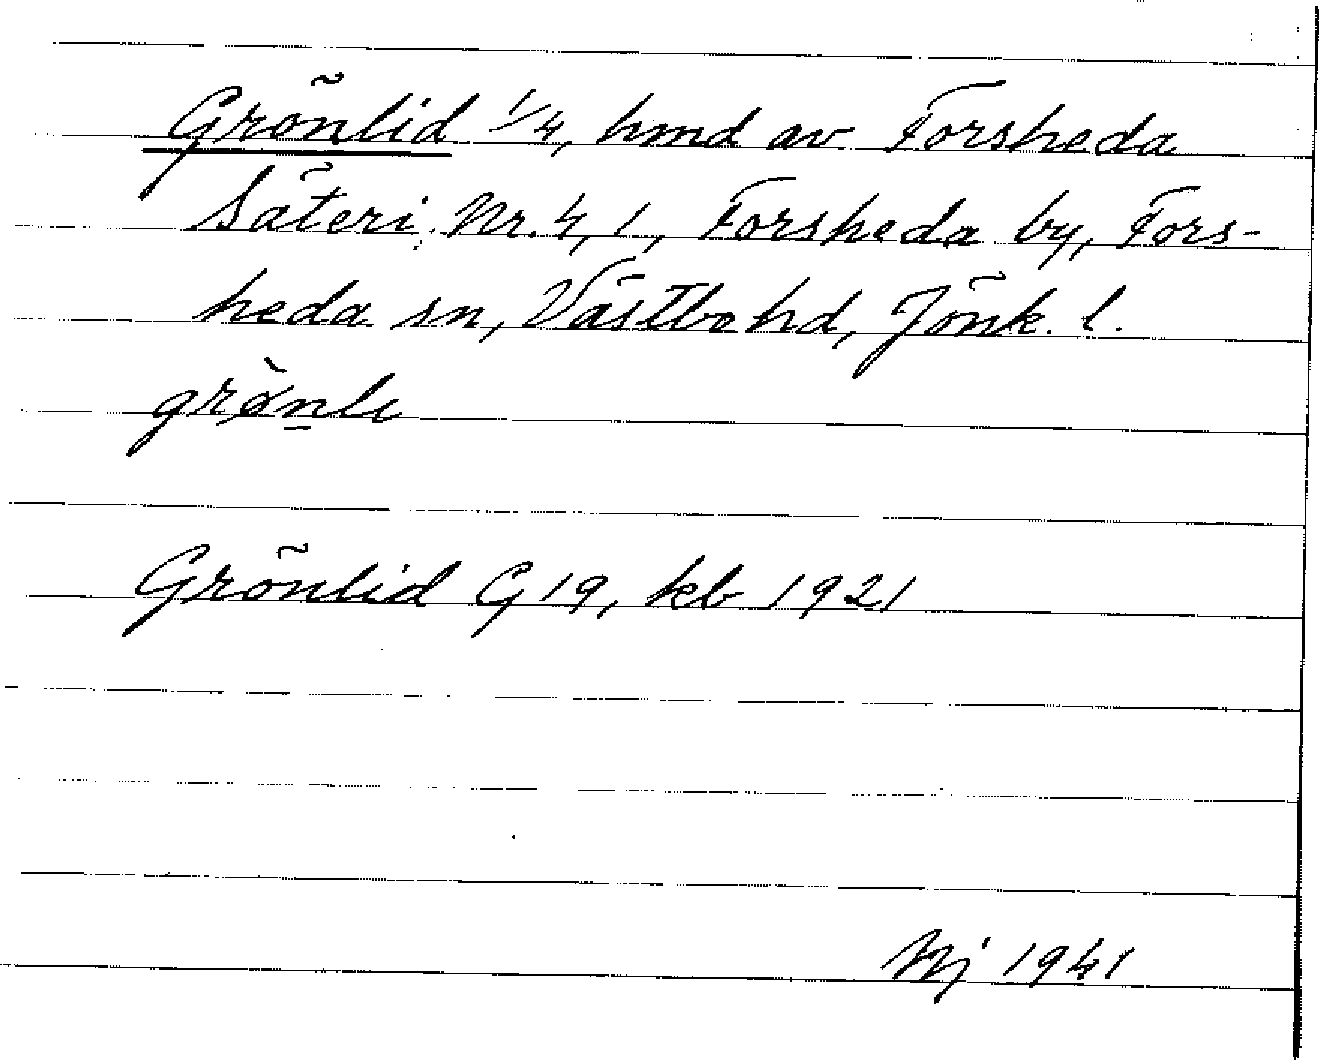 Grönlid 1/4, hmd av Forsheda
Säteri Nr. 4, 1, Forsheda by, Fors-
heda sn, Västbo hd, Jönk. l.
grö̀n̲le
Grönlid G 19, kb 1921
1941